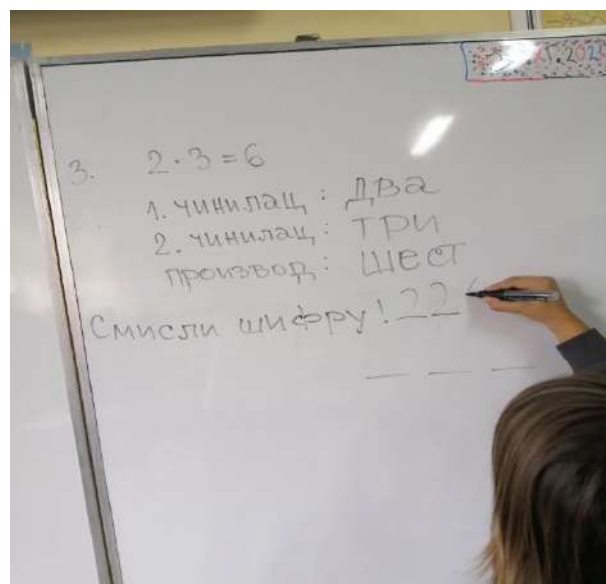 3. 2 · 3 = 6
1. чинилац : два
2. чинилац : три
производ : шест
Смисли шифру! 22